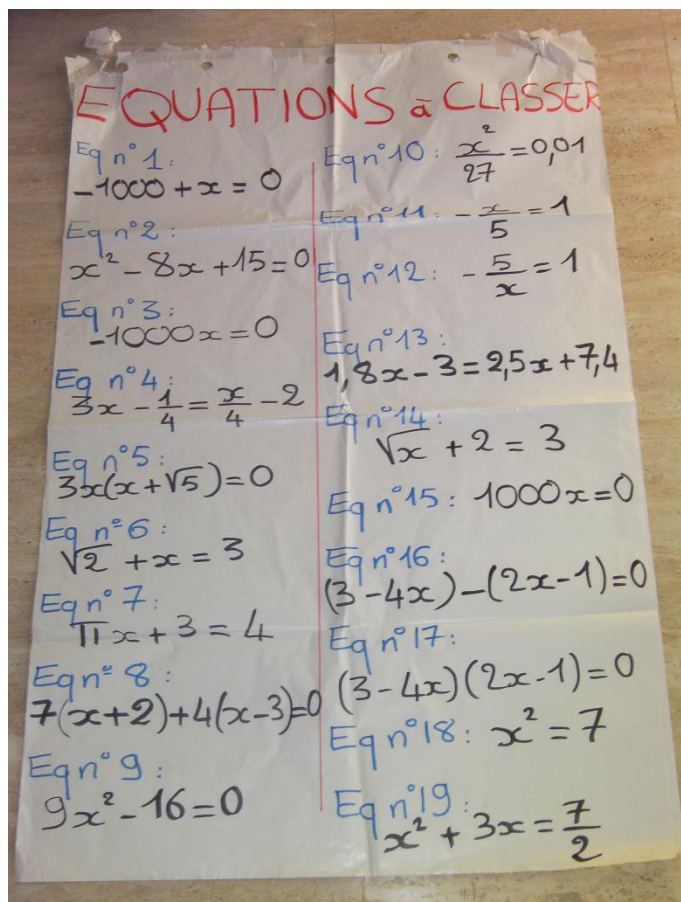 EQUATIONS à CLASSER
Eq n°1:
-1000 + x = 0
Eq n°2:
x² - 8x + 15 = 0
Eq n°3:
-1000x = 0
Eq n°4:
3x - 1/4 = x/4 - 2
Eq n°5:
3x(x + √5) = 0
Eq n°6:
√2 + x = 3
Eq n°7:
πx + 3 = 4
Eq n° 8:
7(x+2)+4(x-3)=0
Eq n°9:
9x² - 16 = 0
Eq n°10: x²/27 = 0,01
Eq n°11: -x/5 = 1
Eq n°12: -5/x = 1
Eq n°13:
1,8x - 3 = 2,5x + 7,4
Eq n°14:
√x + 2 = 3
Eq n°15: 1000x = 0
Eq n°16:
(3 - 4x) - (2x - 1) = 0
Eq n°17:
(3 - 4x)(2x - 1) = 0
Eq n°18: x² = 7
Eq n°19:
x² + 3x = 7/2